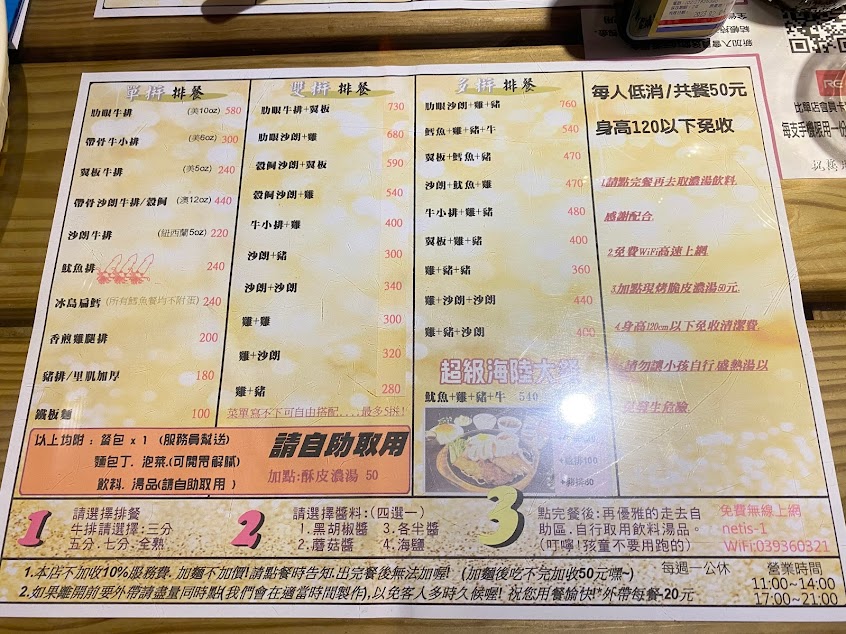 單拼 排餐
肋眼牛排 (美10oz) 580
帶骨牛小排 (美6oz) 300
翼板牛排 (美5oz) 240
帶骨沙朗牛排/穀飼 (澳12oz) 440
沙朗牛排 (紐西蘭5oz) 220
魷魚排 240
冰島扁鱈 (所有鱈魚餐均不附蛋) 240
香煎雞腿排 200
豬排/里肌加厚 180
鐵板麵 100
雙拼 排餐
肋眼牛排+翼板 730
肋眼沙朗+雞 680
穀飼沙朗+翼板 590
穀飼沙朗+雞 540
牛小排+雞 400
沙朗+豬 300
沙朗+沙朗 340
雞+雞 300
雞+沙朗 320
雞+豬 280
菜單寫不下可自由搭配....最多5拼!
多拼 排餐
肋眼沙朗+雞+豬 760
鱈魚+雞+豬+牛 540
翼板+鱈魚+豬 540
沙朗+魷魚+雞 470
牛小排+雞+豬 480
翼板+雞+豬 400
雞+豬+豬 360
雞+沙朗+沙朗 440
雞+豬+沙朗 400
超級海陸大餐
魷魚+雞+豬+牛 540
每人低消/共餐50元
身高120以下免收
1.請點完餐再去取濃湯飲料
感謝配合
2.免費WiFi高速上網
3.加點現烤脆皮濃湯50元
4.身高120cm以下免收清潔費
請勿讓小孩自行盛熱湯以
發生危險
以上均附 : 餐包 x 1 (服務員幫送)
麵包丁. 泡菜.(可開胃解膩)
飲料. 湯品(請自助取用 )
請自助取用
加點:酥皮濃湯 50
1
請選擇排餐
牛排請選擇:三分
五分.七分.全熟.
2
請選擇醬料:(四選一)
1.黑胡椒醬 3.各半醬
2.蘑菇醬 4.海鹽
3
點完餐後:再優雅的走去自
助區.自行取用飲料湯品。
(叮嚀!孩童不要用跑的)
免費無線上網
netis-1
WiFi:039360321
1.本店不加收10%服務費. 加麵不加價!請點餐時告知.出完餐後無法加喔! (加麵後吃不完加收50元嘿~)
2.如果離開前要外帶請盡量同時點(我們會在適當時間製作),以免客人多時久候喔! 祝您用餐愉快!*外帶每餐-20元
每週一公休
營業時間
11:00~14:00
17:00~21:00
新加入會員
比單店會員卡
每支手機限用一份